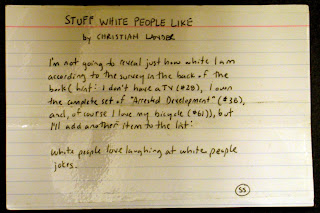 STUFF WHITE PEOPLE LIKE
by CHRISTIAN LANDER
I'm not going to reveal just how white I am
according to the survey in the back of the
book (hint: I don't have a TV (#28), I own
the complete set of "Arrested Development" (#38),
and, of course I love my bicycle (#61)), but
I'll add another item to the list:
White people love laughing at white people
jokes.
SS